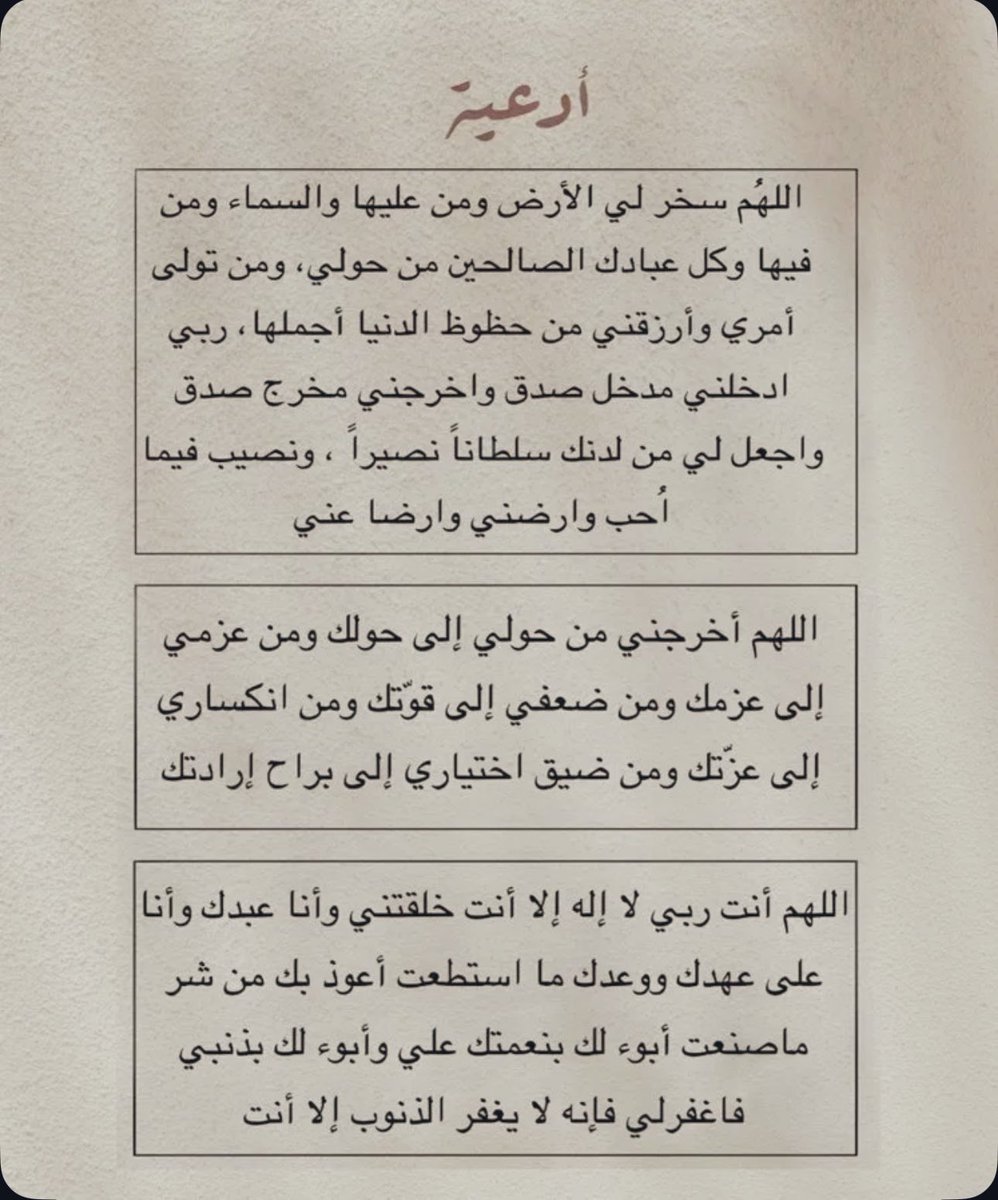 أدعية
اللهُم سخر لي الأرض ومن عليها والسماء ومن
فيها وكل عبادك الصالحين من حولي، ومن تولى
أمري وأرزقني من حظوظ الدنيا أجملها، ربي
ادخلني مدخل صدق واخرجني مخرج صدق
واجعل لي من لدنك سلطاناً نصيراً ، ونصيب فيما
اُحب وارضني وارضا عني
اللهم أخرجني من حولي إلى حولك ومن عزمي
إلى عزمك ومن ضعفي إلى قوّتك ومن انكساري
إلى عزّتك ومن ضيق اختياري إلى براح إرادتك
اللهم أنت ربي لا إله إلا أنت خلقتني وأنا عبدك وأنا
على عهدك ووعدك ما استطعت أعوذ بك من شر
ماصنعت أبوء لك بنعمتك علي وأبوء لك بذنبي
فاغفرلي فإنه لا يغفر الذنوب إلا أنت